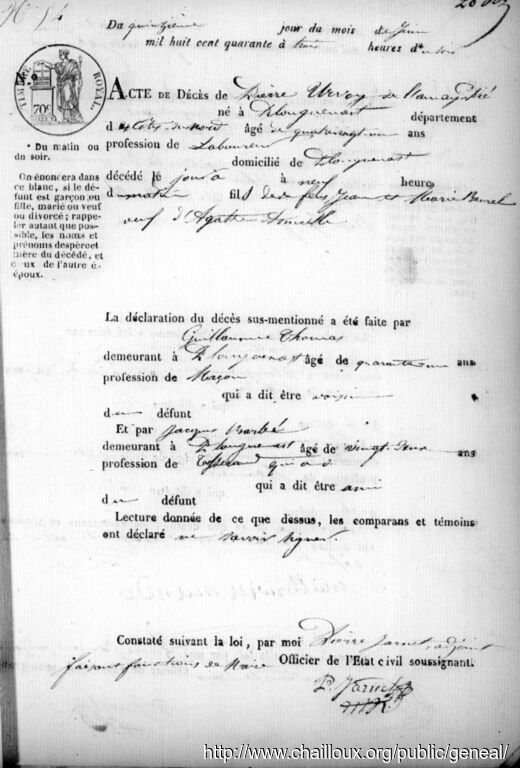 N° 54
Du quinzième jour du mois de Juin
mil huit cent quarante à trois heures du soir
TIMBRE ROYAL
70c
ACTE DE DÉCÈS DE Pierre Urvoy
né à Plouguenast département
des Côtes-du-nord âgé de quatrevingt un ans
profession de Laboureur
domicilié de Plouguenast
décédé le jour à neuf heures
du matin fils de feus Jean et Marie
veuf d'Agathe
* Du matin ou
du soir.
On énoncera dans
ce blanc, si le dé-
funt est garçon ou
fille, marié ou veuf
ou divorcé; rappe-
ler autant que pos-
sible, les noms et
prénoms des père et
mère du décédé, et
ceux de l'autre é-
époux.
La déclaration du décès sus-mentionné a été faite par
Guillaume Thomas
demeurant à Plouguenast âgé de quarante un ans
profession de Maçon
qui a dit être voisin
du défunt
Et par Jacques Barbé
demeurant à Plouguenast âgé de vingt-deux ans
profession de Tisserand
qui a dit être ami
du défunt
Lecture donnée de ce que dessus, les comparans et témoins
ont déclaré ne savoir signer.
Constaté suivant la loi, par moi Pierre Jarnet, adjoint
faisant fonctions de Maire Officier de l'Etat civil soussignant.
P. Jarnet
http://www.chailloux.org/public/geneal/